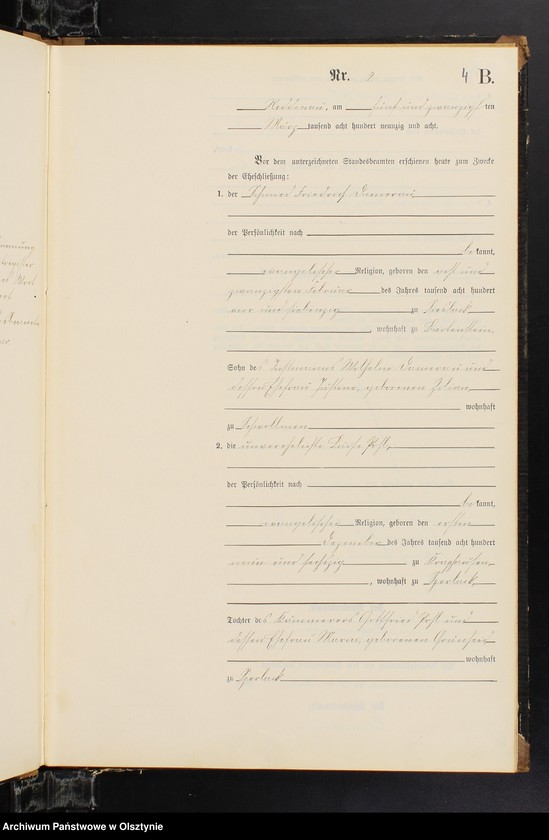 Nr. 2 4 B.
Reddenau, am fünf und zwanzigsten
März tausend acht hundert neunzig und acht.
Vor dem unterzeichneten Standesbeamten erschienen heute zum Zwecke
der Eheschließung:
1. der Friedrich Damerau
der Persönlichkeit nach
bekannt,
evangelischer Religion, geboren den und
zwanzigsten Februar des Jahres tausend acht hundert
vier und siebenzig zu
, wohnhaft zu Bartenstein,
Sohn des Wilhelm Damerau und
dessen Ehefrau Justine, geborenen
wohnhaft
zu
2. die unverehelichte Luise Post,
der Persönlichkeit nach
bekannt,
evangelischer Religion, geboren den ersten
Dezember des Jahres tausend acht hundert
neun und sechszig zu
, wohnhaft zu Sperlack,
Tochter des Kämmerers Gottfried Post und
dessen Ehefrau Maria, geborenen
wohnhaft
zu Sperlack
Archiwum Państwowe w Olsztynie